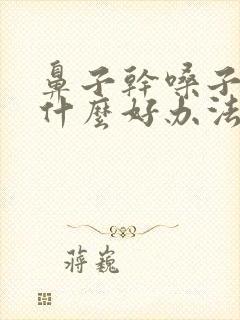 鼻子幹嗓子
什麼好办法
蔣巍